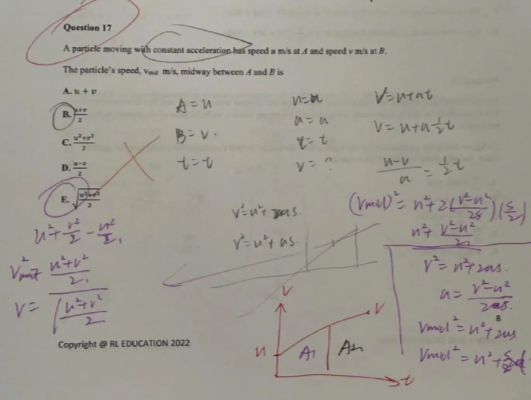 Question 17
A particle moving with constant acceleration has speed u m/s at A and speed v m/s at B.
The particle's speed, v_mid m/s, midway between A and B is
A. u + v
B. (u+v)/2
C. (u²+v²)/2
D. (u-v)/2
E. √((u²+v²)/2)
A = u
B = v.
t = t
u=u
a = a
t = t
v = ?
V=u+at
V=u+a½t
(u-v)/a = ½t
v²=u²+2as
v²=u²+as
u²+v²/2-u²/2
(u²+v²)/2
V=√((u²+v²)/2)
(Vmid)²=u²+2((v²-u²)/2s)(s/2)
u²+(v²-u²)/2
V²=u²+2as.
a=(v²-u²)/2s
Vmid²=u²+2as
V
u
V
A1
A2
t
Copyright @ RL EDUCATION 2022